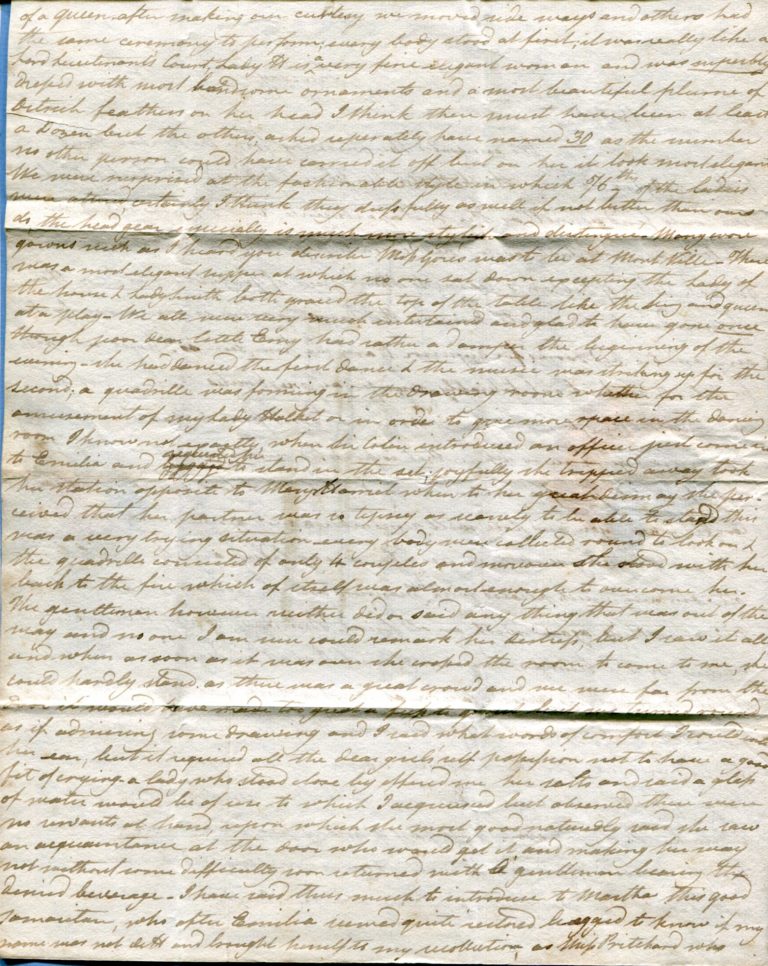 of a queen. after making our curtesy we moved side ways and others had
the same ceremony to perform, every body stood at first; it was really like a
Lord Lieutenants Court, Lady H is a very fine elegant woman and was superbly
dressed with most handsome ornaments and a most beautiful plume of
Ostrich feathers on her head I think there must have been at least
a dozen but the others, asked seperately have named 30 as the number
no other person could have carried it off but on her it look most elegant
We were surprised at the fashionable style in which 5/6ths of the ladies
were certainly I think they dress fully as well if not better than ours
do the head gear especially is much more and Many wore
gowns such as I heard you describe Miss was to be at Mont Ville - There
was a most elegant supper at which no one sat down excepting the Lady of
the house & Lady both graced the top of the table like the king and queen
at a play - We all were very much entertained and glad to have gone once
though poor dear little Emy had rather a damper the beginning of the
evening - she had danced the first dance & the music was striking up for the
second, a quadrille was forming in the drawing room whether for the
amusement of my Lady or in order to give more space in the dancing
room I know not exactly, when Sir introduced an officer just come in
to Emilia and requested her to stand in the set, joyfully she tripped away took
her station opposite to Mary when to her great dismay she per-
ceived that her partner was so tipsy as scarcely to be able to stand this
was a very trying situation every body were collected round to look on &
the quadrille consisted of only 4 couples and moreover she stood with her
back to the fire which of itself was almost enough to overcome her.
The gentleman however neither did or said any thing that was out of the
way and no one I am sure could remark her distress, but I saw it all
and when as soon as it was over she crossed the room to come to me, she
could hardly stand. as there was a great crowd and we were far from the
turned round
as if admiring some drawing and I said what words of comfort I could
her ear, but it required all the dear girl's self possession not to have a good
fit of crying. a lady who stood close by offered me her salts and said a glass
of water would be of use, to which I acquiesced but observed there were
no servants at hand, upon which she most good naturedly said she saw
an acquaintance at the door who would get it and making her way
not without some difficulty soon returned with a gentleman bearing the
desired beverage - I have said thus much to introduce to Martha this good
samaritan, who after Emilia seemed quite restored begged to know if my
name was not and brought herself to my recollection, as Miss Pritchard who